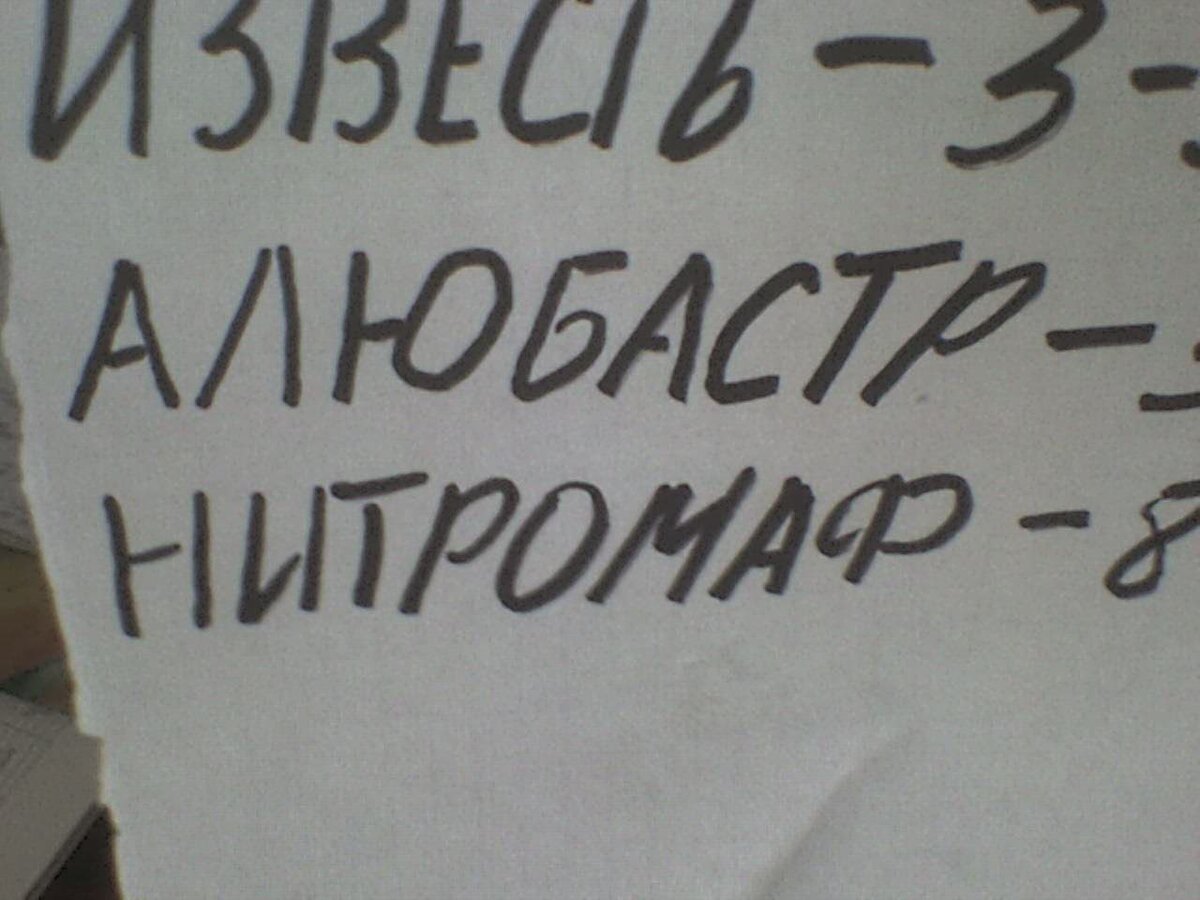 ИЗВЕСТЬ - 3 -
АЛЮБАСТР -
НИТРОМАФ - 8